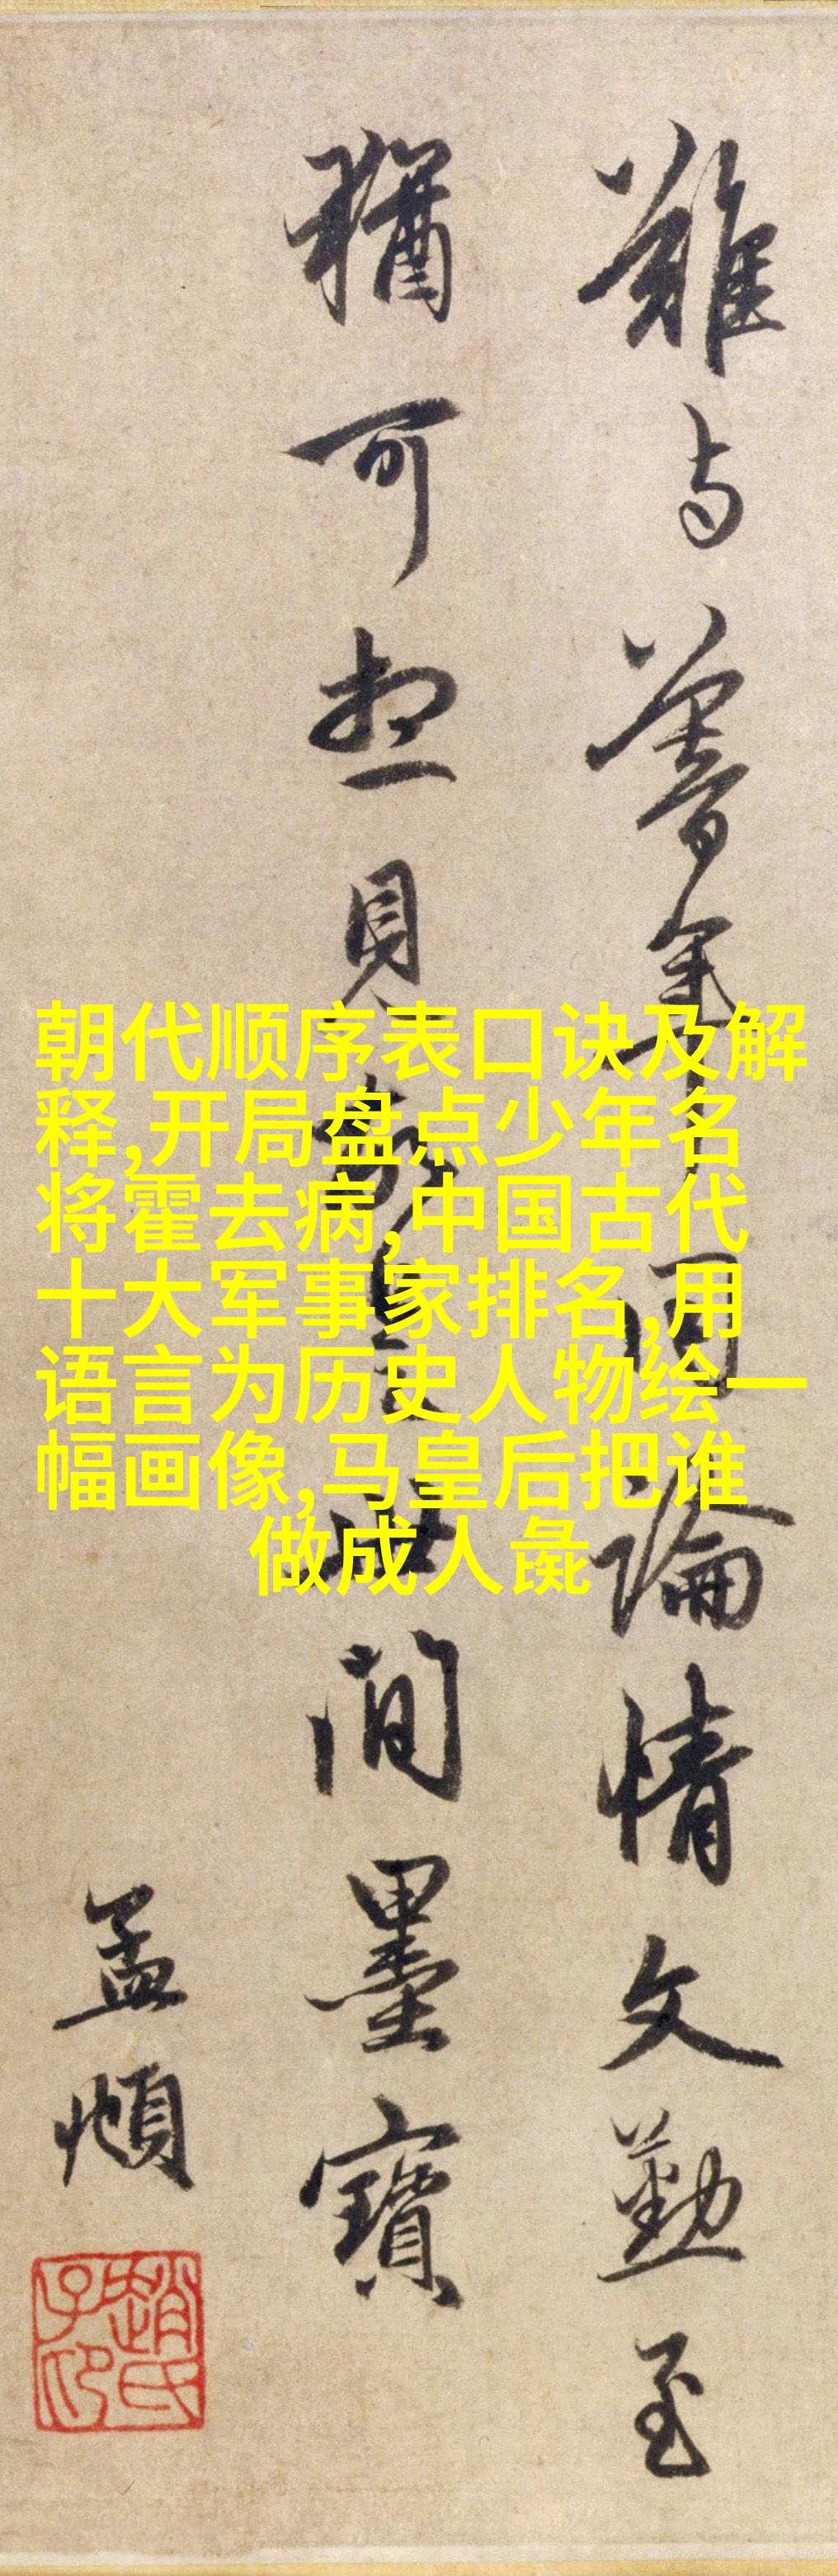 難与蕃年同論情文勤至
猶可想見故是世間墨寶
孟頫
趙氏子印
朝代顺序表口诀及解
释,开局盘点少年名
将霍去病,中国古代
十大军事家排名,用
语言为历史人物绘一
幅画像,马皇后把谁
做成人彘